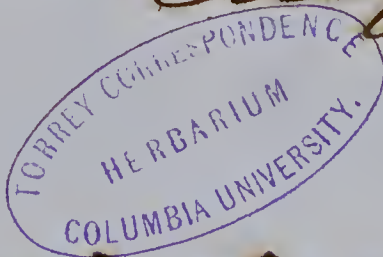 TORREY CORRESPONDENCE
HERBARIUM
COLUMBIA UNIVERSITY.